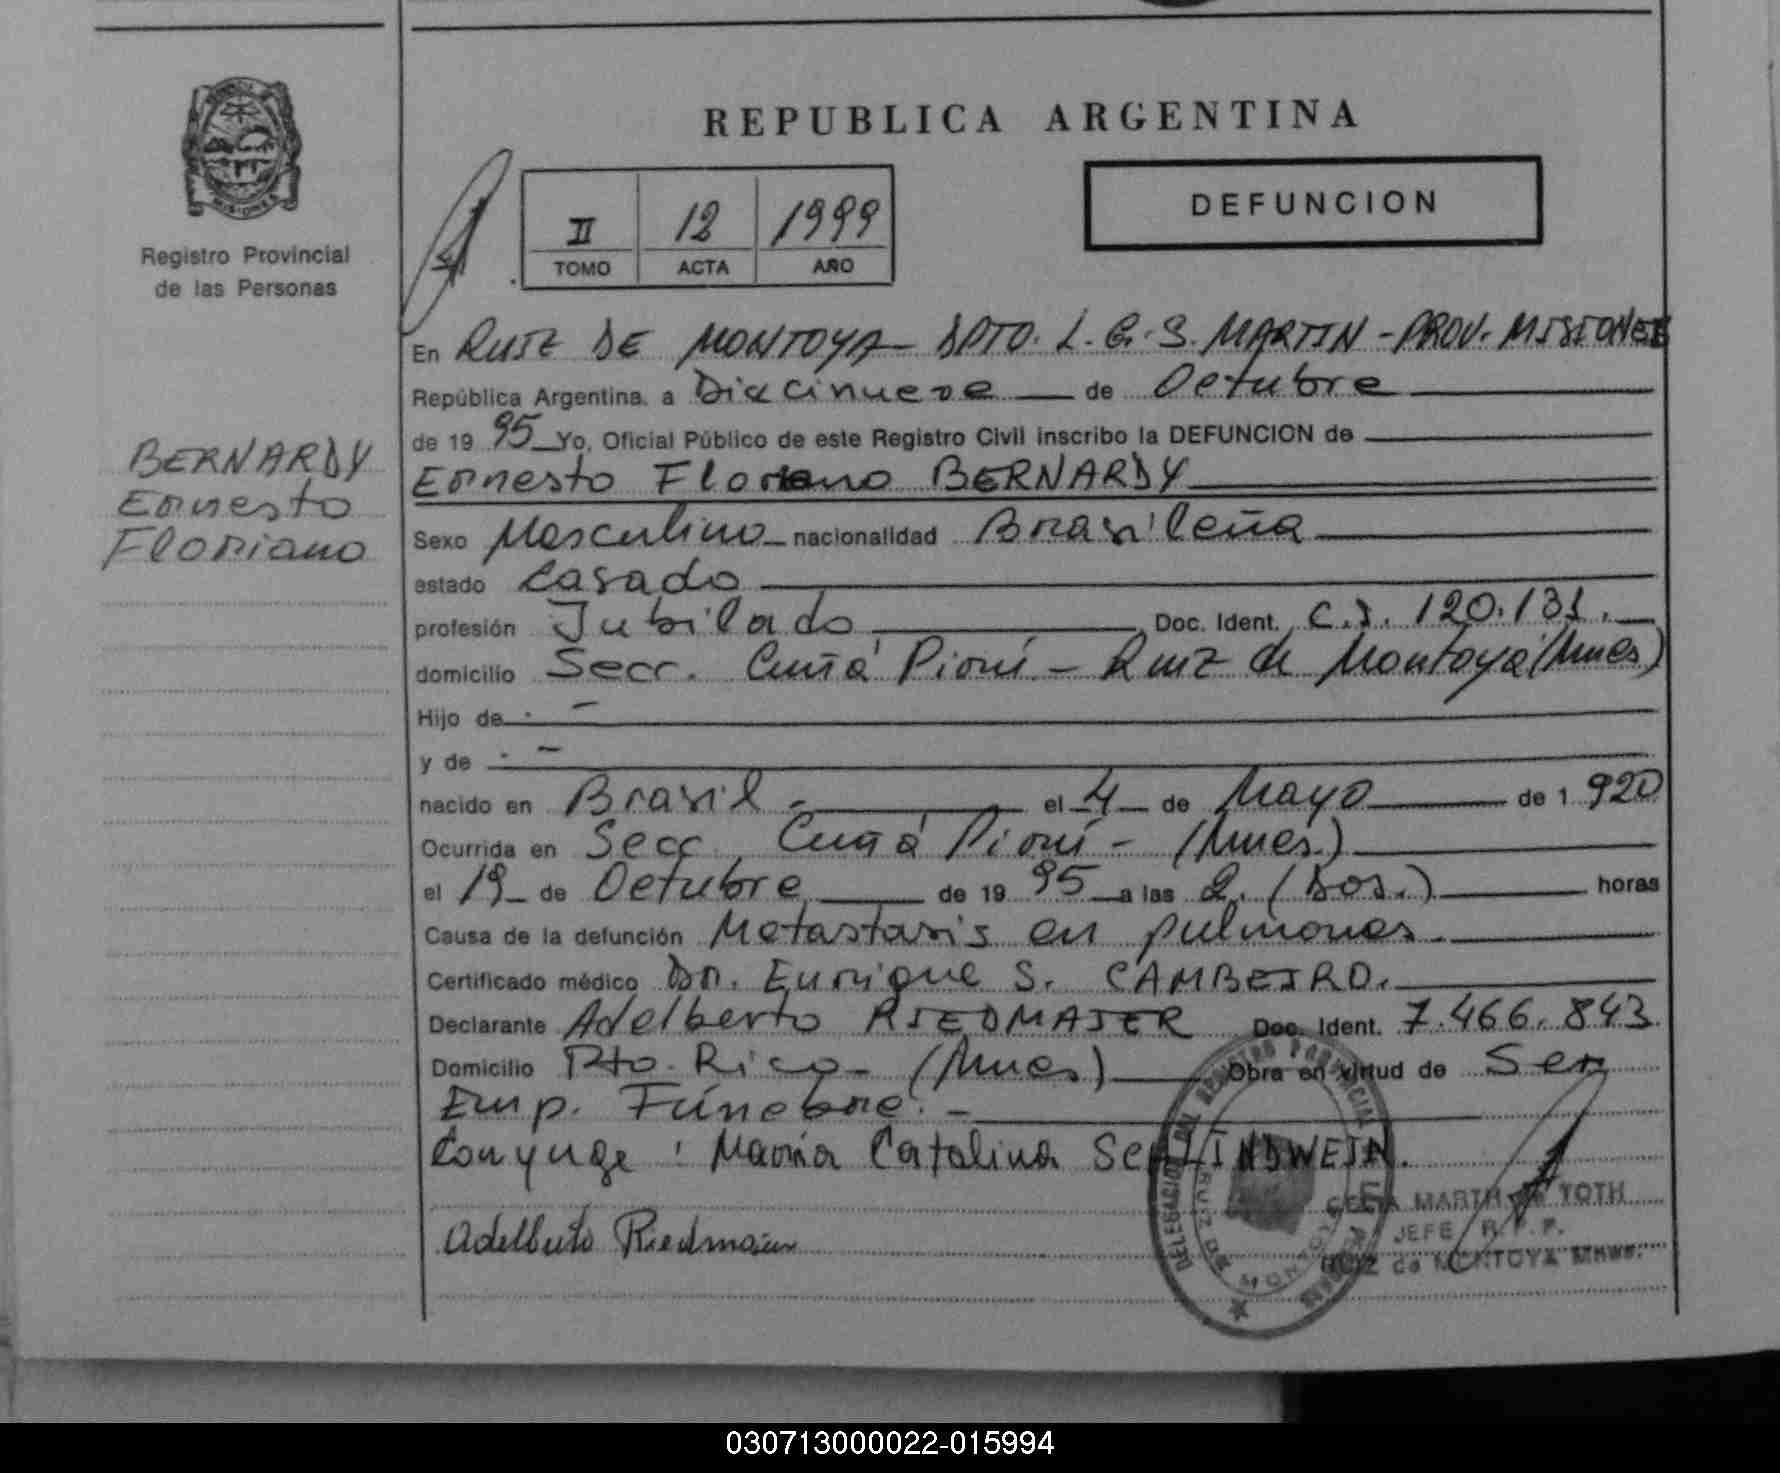 REPUBLICA ARGENTINA
MISIONES
Registro Provincial
de las Personas
II 12 1999
TOMO ACTA AÑO
DEFUNCION
BERNARDY
Ernesto
Floriano
En RUIZ DE MONTOYA - DPTO. L.G.S. MARTIN - PROV. MISIONES
República Argentina, a Diecinueve de Octubre
de 19 95 Yo, Oficial Público de este Registro Civil inscribo la DEFUNCION de
Ernesto Floriano BERNARDY
Sexo Masculino nacionalidad Brasileña
estado Casado
profesión Jubilado Doc. Ident. C.I. 120.131.
domicilio Secc. Cuñá Pirú - Ruiz de Montoya (Mnes)
Hijo de . -
y de . -
nacido en Brasil - el 4 de Mayo de 1 920
Ocurrida en Secc. Cuñá Pirú - (Mnes.)
el 19 de Octubre de 19 95 a las 2. (Dos.) horas
Causa de la defunción Metastasis en pulmones.
Certificado médico Dr. Enrique S. CAMBEIRO.
Declarante Adelberto RIEDMAIER Doc. Ident. 7.466.843
Domicilio Pto. Rico - (Mnes) Obra en virtud de Ser
Emp. Fúnebre. -
Conyuge : María Catalina SCHINDWEIN.
MARTH TOTH
JEFE R.P.P.
Adelberto Riedmaier
RUIZ de MONTOYA Mnes.
DELEGACION DEL REGISTRO PROVINCIAL
RUIZ DE MONTOYA
030713000022-015994